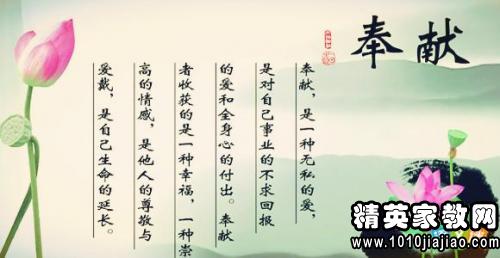 奉献
奉献，是一种无私的爱，
是对自己事业的不求回报
的爱和全身心的付出。奉献
者收获的是一种幸福，一种崇
高的情感，是他人的尊敬与
爱戴，是自己生命的延长。
精英家教网
www.1010jiajiao.com